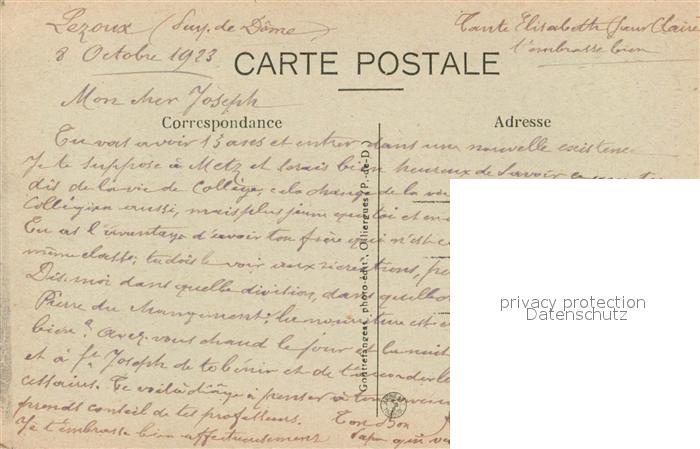 Lezoux (Puy. de Dôme)
8 Octobre 1923
Tante Elisabeth Sœur Claire
t'embrasse bien
CARTE POSTALE
Mon cher Joseph
Correspondance
Adresse
Tu vas avoir 15 ans et entrer dans une nouvelle existence
Je te suppose à Metz et serais bien heureux de savoir ce que tu
dis de la vie de Collège, cela change de la vie
Collégien aussi, mais plus jeune que toi et en
Tu as l'avantage d'avoir ton frère qui n'est
même classe; tu dois le voir aux récréations,
Dis-moi dans quelle division, dans quelle
Pierre du Mangement; la nourriture est
bière? Avez-vous chaud le jour et la nuit
et à St Joseph de te bénir et de t'accorder le
cessaires. Te voilà d'âge à penser à ton avenir
prends conseil de tes professeurs. Ton Bon
Je t'embrasse bien affectueusement Papa qui
Gontrefanges, photo-édit., Olliergues (P.-de-D.
privacy protection
Datenschutz